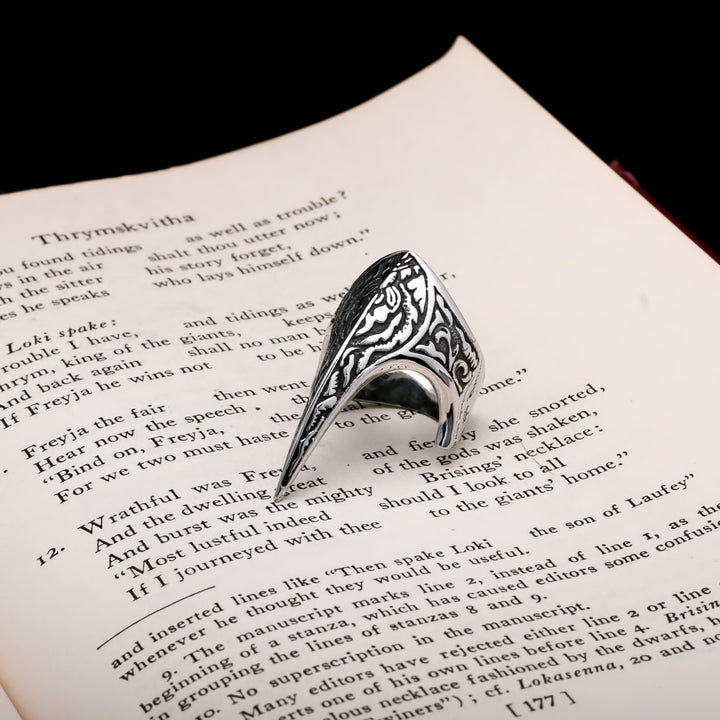 Thrymskvitha
ou found tidings as well as trouble?
ys in the air shalt thou utter now;
h the sitter his story forget,
es he speaks who lays himself down.”
Loki spake:
rouble I have, and tidings as w
hrym, king of the giants, keeps
nd back again shall no man b
If Freyja he wins not to be h
Freyja the fair then went
Hear now the speech the
“Bind on, Freyja, the
For we two must haste to the g ome.”
12. Wrathful was Freyja, and fiercely she snorted,
And the dwelling great of the gods was shaken,
And burst was the mighty Brisings’ necklace:
“Most lustful indeed should I look to all
If I journeyed with thee to the giants’ home.”
and inserted lines like “Then spake Loki the son of Laufey”
whenever he thought they would be useful.
9. The manuscript marks line 2, instead of line 1, as the
beginning of a stanza, which has caused editors some confusi
in grouping the lines of stanzas 8 and 9.
10. No superscription in the manuscript.
Many editors have rejected either line 2 or line
erts one of his own lines before line 4. Brisin
ulous necklace fashioned by the dwarfs, h
winers”); cf. Lokasenna, 20 and no
[177]